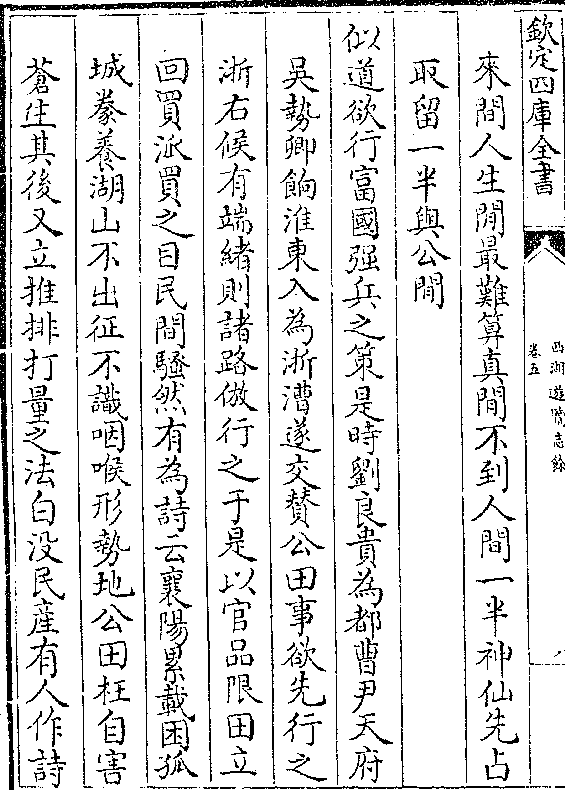 欽定四庫全書
西湖遊覽志餘
卷五
來閒人生閒最難算真閒不到人間一半神仙先占
取留一半與公閒
似道欲行富國强兵之策是時劉良貴為都曹尹天府
吳勢卿餉淮東入為浙漕遂交贊公田事欲先行之
浙右候有端緒則諸路倣行之于是以官品限田立
回買派買之目民間騷然有為詩云襄陽累載困孤
城豢養湖山不出征不識咽喉形勢地公田枉自害
蒼生其後又立推排打量之法白没民産有人作詩